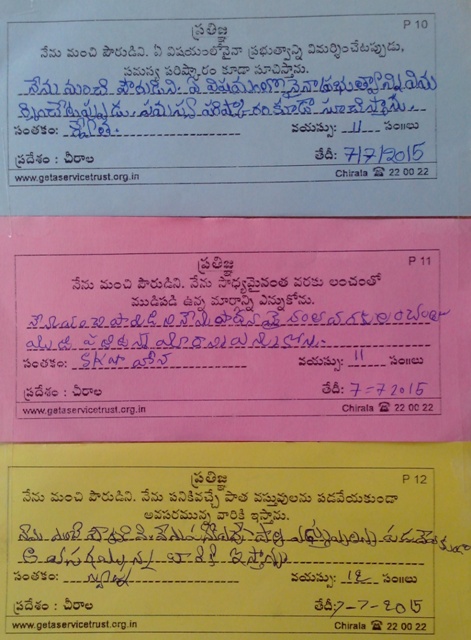 ప్రతిజ్ఞ P 10
నేను మంచి పౌరుడిని. ఏ విషయంలోనైనా ప్రభుత్వాన్ని విమర్శించేటప్పుడు,
సమస్య పరిష్కారం కూడా సూచిస్తాను.
నేను మంచి పౌరుడిని. ఏ విషయంలోనైనా ప్రభుత్వాన్ని విమ
ర్శించేటప్పుడు, సమస్య పరిష్కారం కూడా సూచిస్తాను.
సంతకం: వయస్సు: 11 సం॥లు
ప్రదేశం : చీరాల తేదీ: 7/7/2015
www.getaservicetrust.org.in Chirala ☎ 22 00 22
ప్రతిజ్ఞ P 11
నేను మంచి పౌరుడిని. నేను సాధ్యమైనంత వరకు లంచంతో
ముడిపడి ఉన్న మార్గాన్ని ఎన్నుకోను.
సంతకం: వయస్సు: 11 సం॥లు
ప్రదేశం : చీరాల తేదీ: 7-7 2015
www.getaservicetrust.org.in Chirala ☎ 22 00 22
ప్రతిజ్ఞ P 12
నేను మంచి పౌరుడిని. నేను పనికివచ్చే పాత వస్తువులను పడవేయకుండా
అవసరమున్న వారికి ఇస్తాను.
సంతకం: వయస్సు: 12 సం॥లు
ప్రదేశం : చీరాల తేదీ: 7-7-2015
www.getaservicetrust.org.in Chirala ☎ 22 00 22